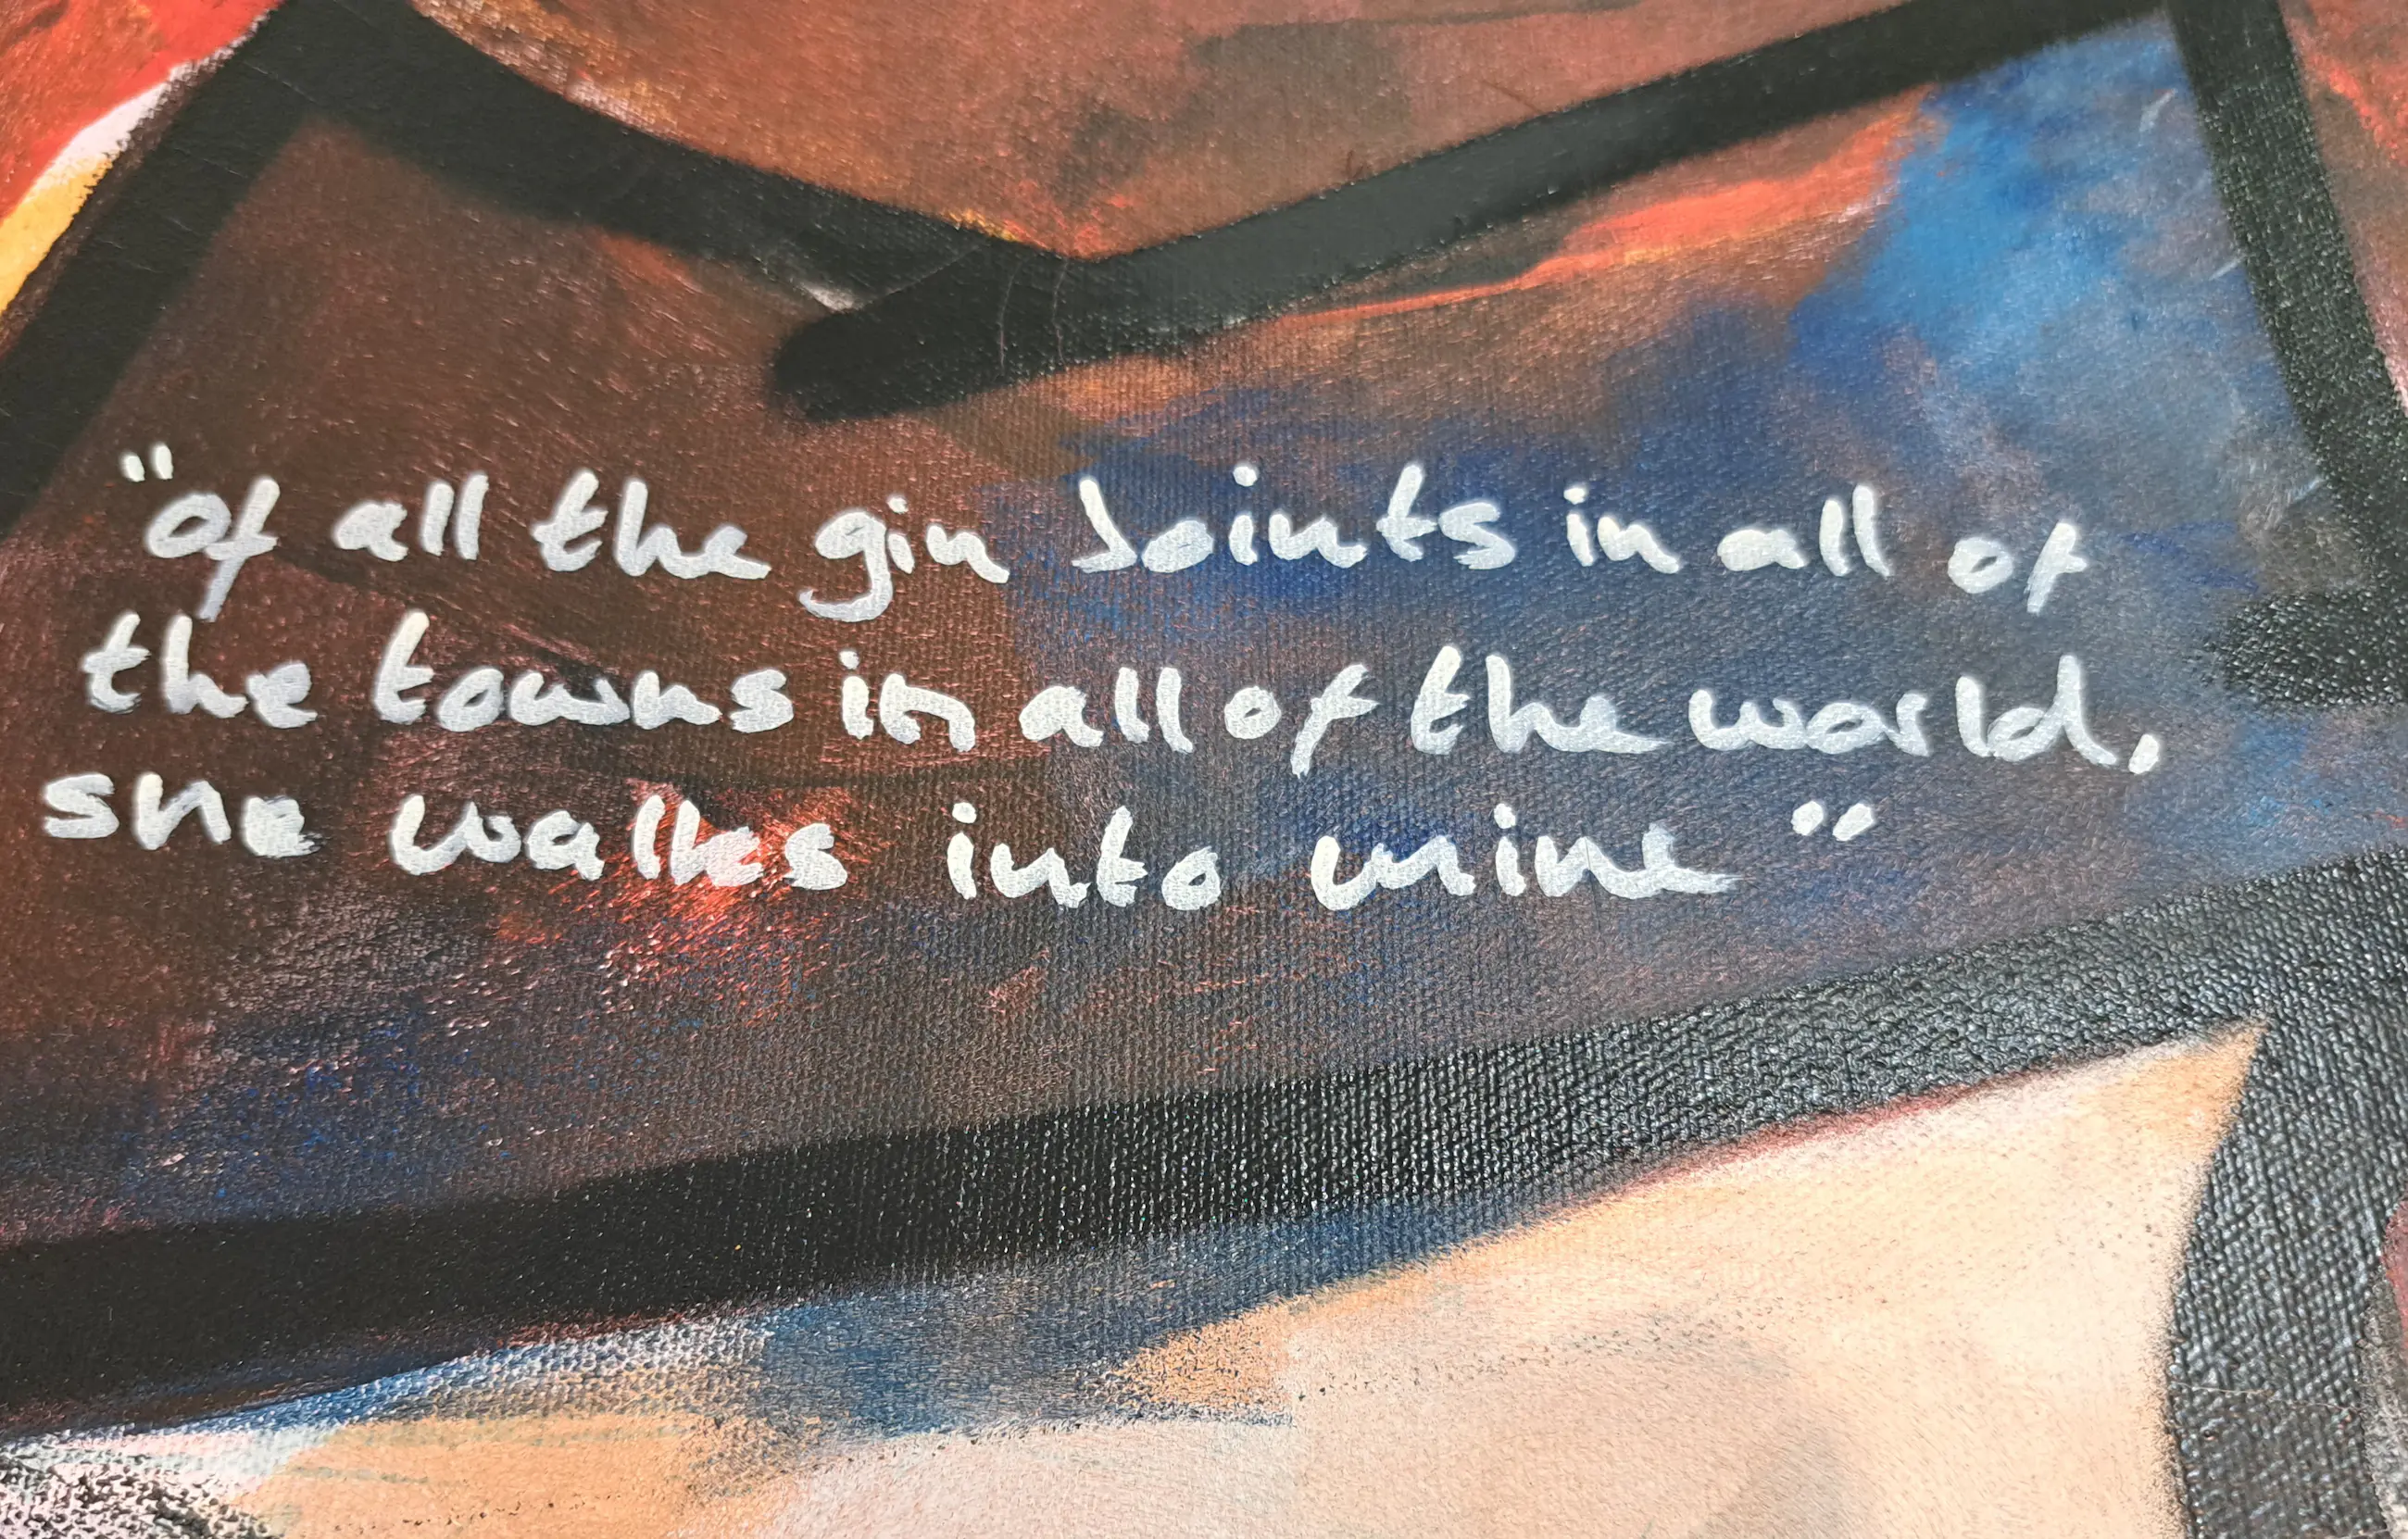 "of all the gin Joints in all of
the towns in all of the world,
she walks into mine"